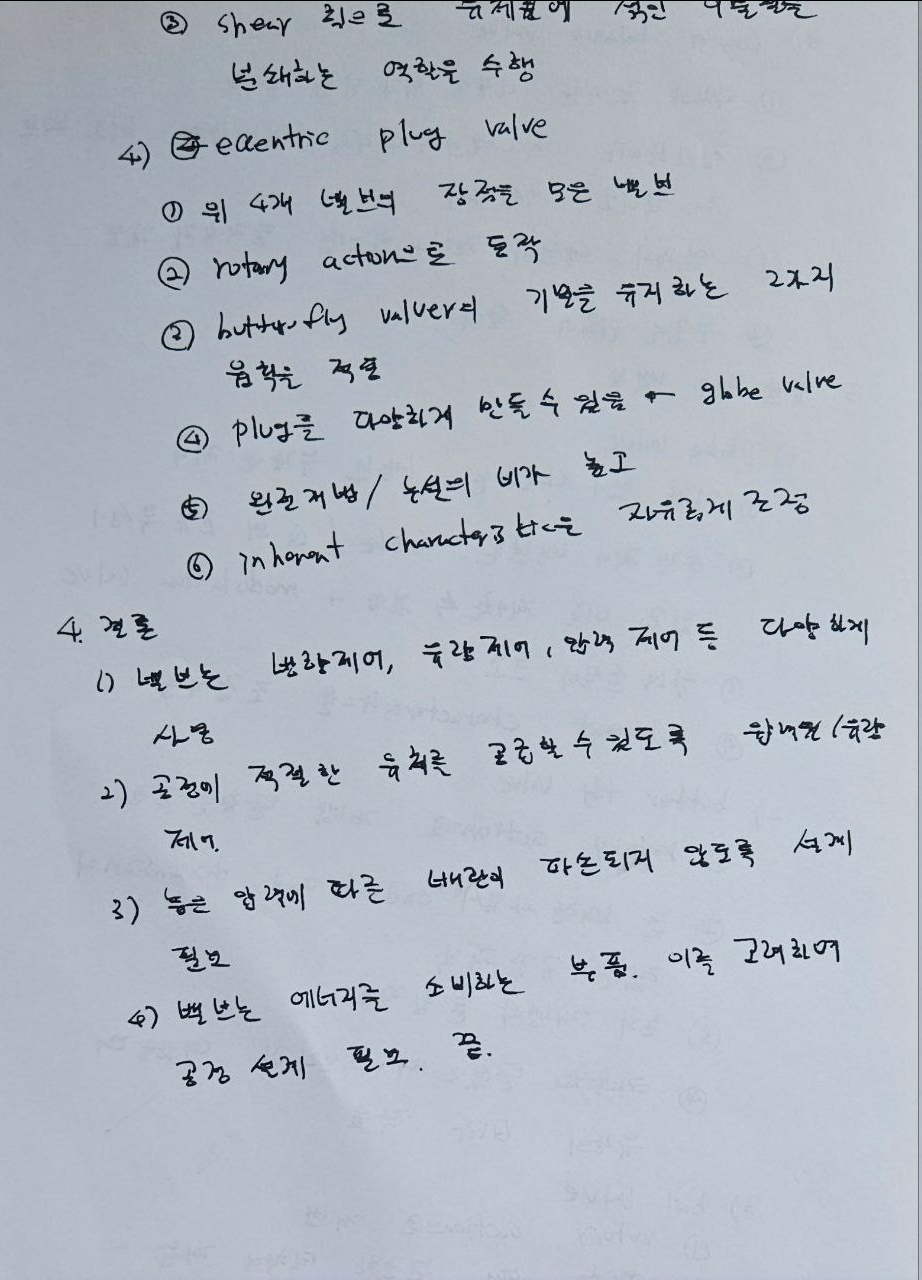 ③ shear 력으로 유체를에
분쇄하는 역학을 수행
4) eccentric plug valve
① 위 4개 밸브의 장점을 모은 밸브
② rotary action으로 동작
② butterfly valve의 기본을 유지하는 2가지
④ plug를 다양하게 만들 수 있음 ← globe valve
⑤ 비가 높고
⑥ inherent characteristic을 자유롭게 조정
4. 결론
1) 밸브는 방향제어, 유량제어, 압력 제어 등 다양하게
사용
2) 공정에 적절한 유체를 공급할 수 있도록 /유량
제어.
3) 높은 압력에 따른 배관이 파손되지 않도록 설계
필요
4) 밸브는 에너지를 소비하는 부품. 이를 고려하여
공정 설계 필요. 끝.